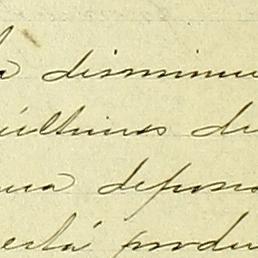 la disminu
últimos di
una deposi
está produ